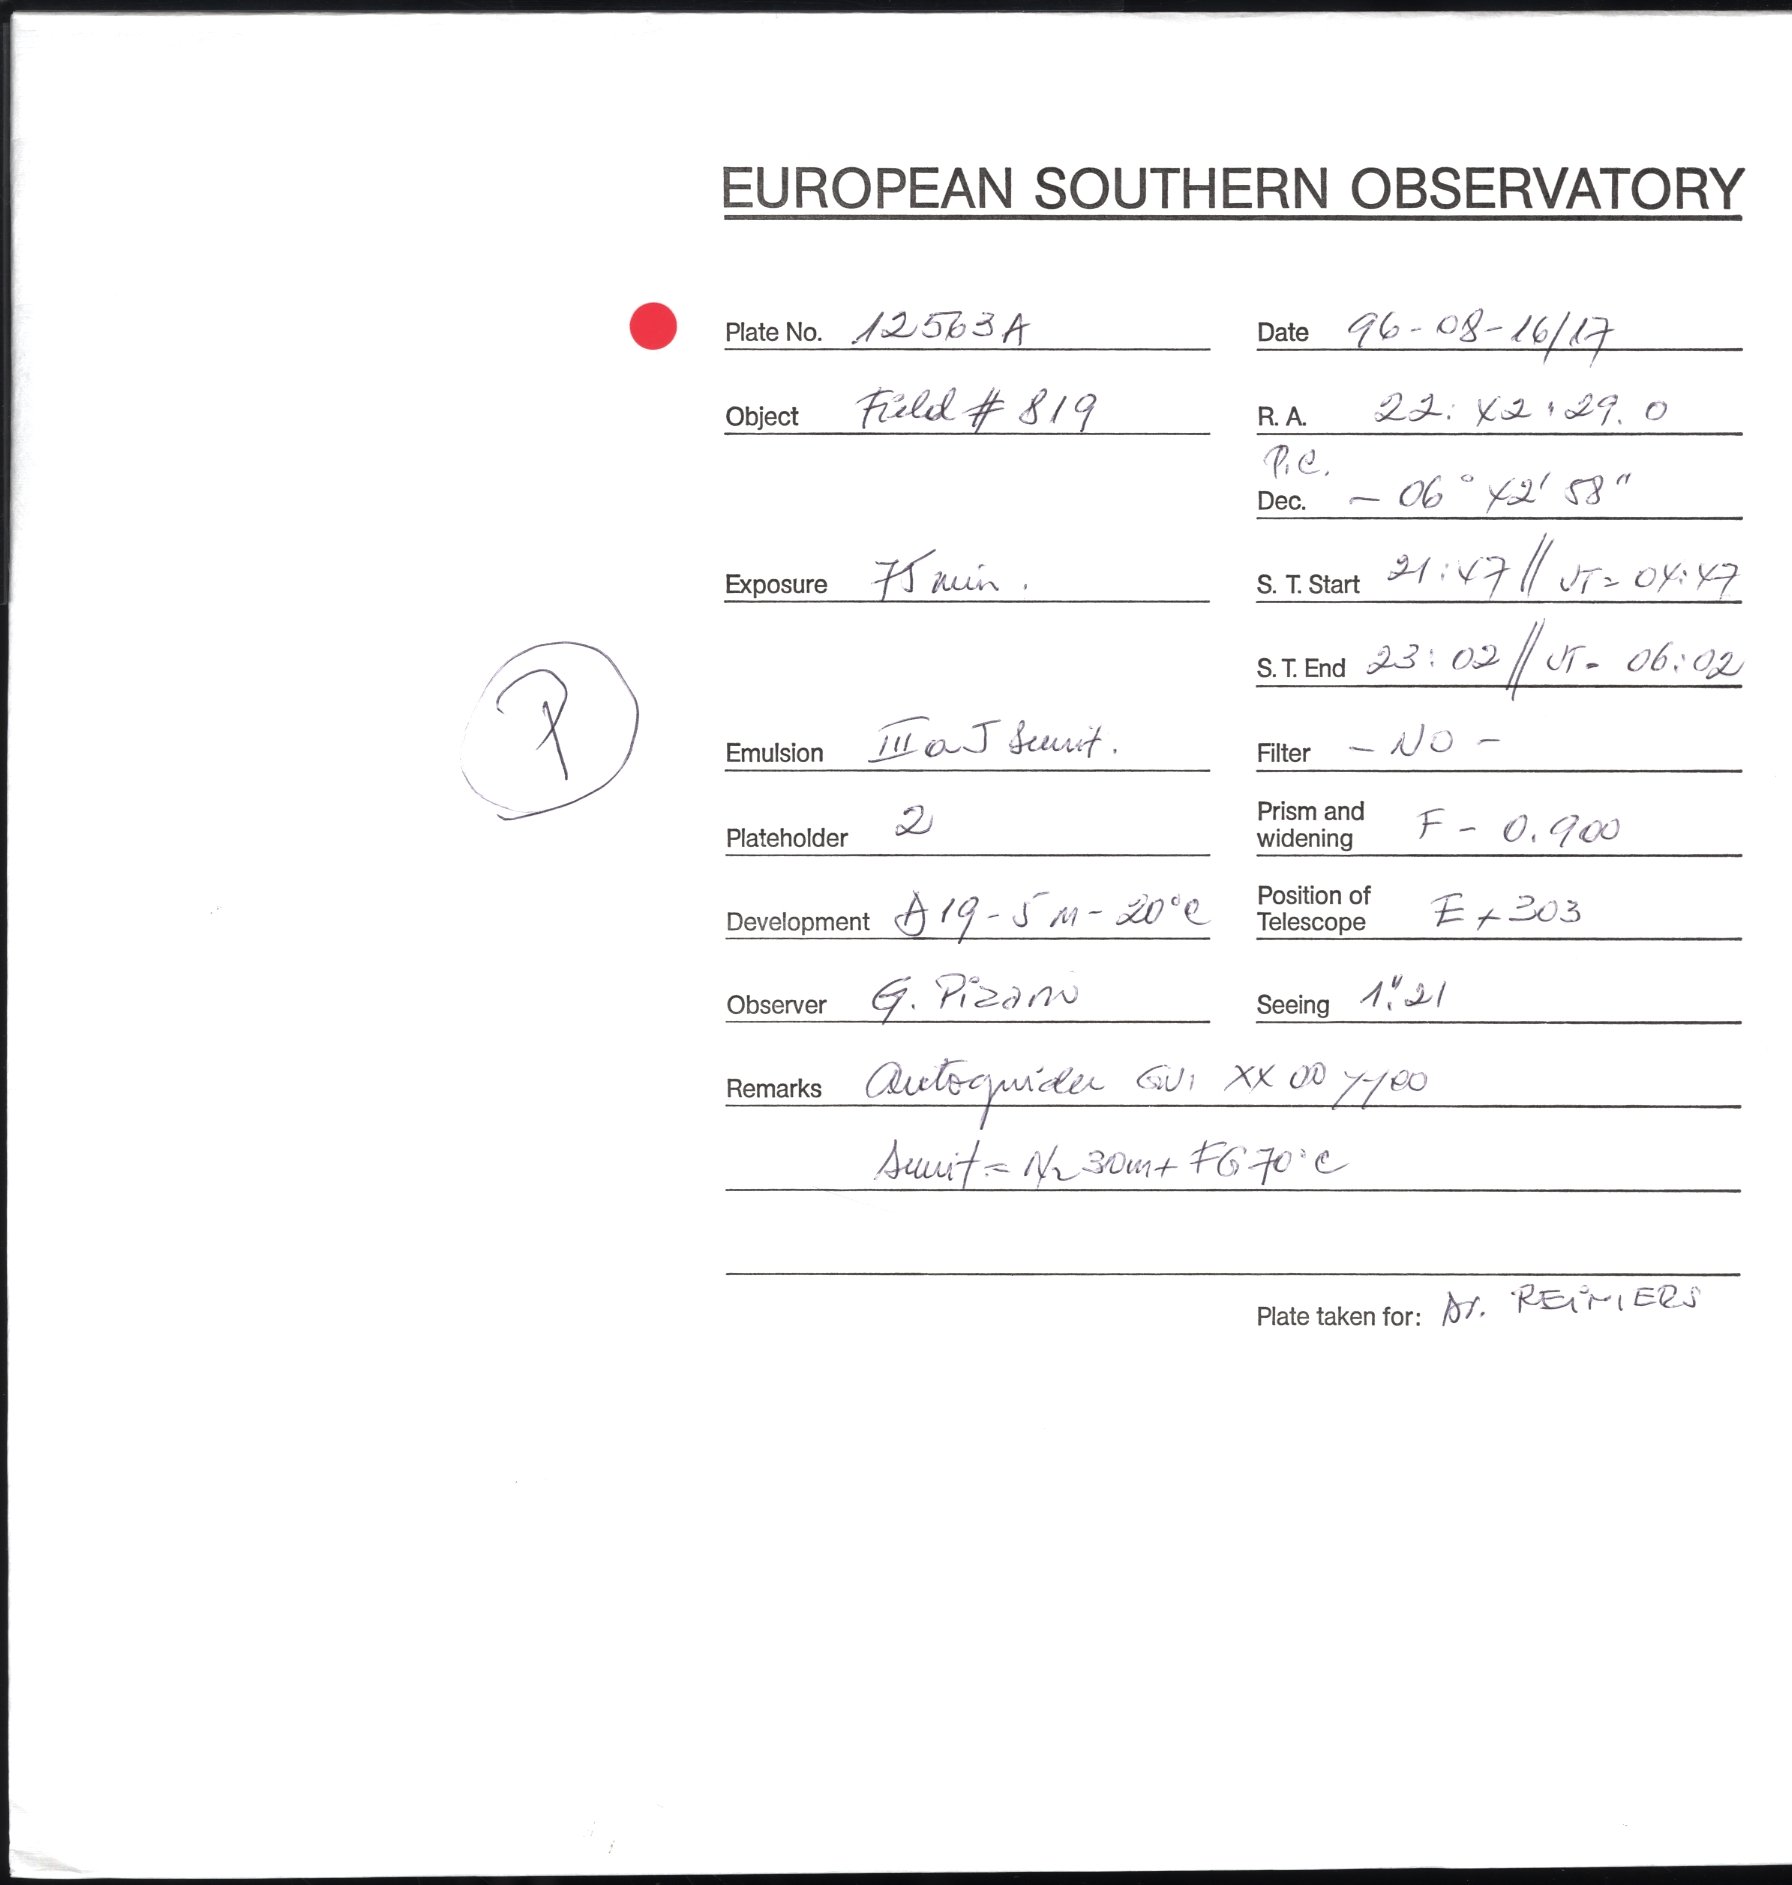 EUROPEAN SOUTHERN OBSERVATORY
Plate No. 12563A Date 96-08-16/17
Object Field # 819 R. A. 22: 42: 29. 0
P.C.
Dec. - 06° 42' 58"
Exposure 75 min. S. T. Start 21:47 // UT= 04:47
S. T. End 23:02 // UT- 06:02
P
Emulsion III a J Sensit. Filter - NO -
Plateholder 2 Prism and widening F - 0.900
Development D19-5m-20°C Position of Telescope E +303
Observer G. Pizarro Seeing 1."21
Remarks Autoguider XX 00 YY00
Sensit= N2 30m+ FG 70°C
Plate taken for: Dr. REIMERS